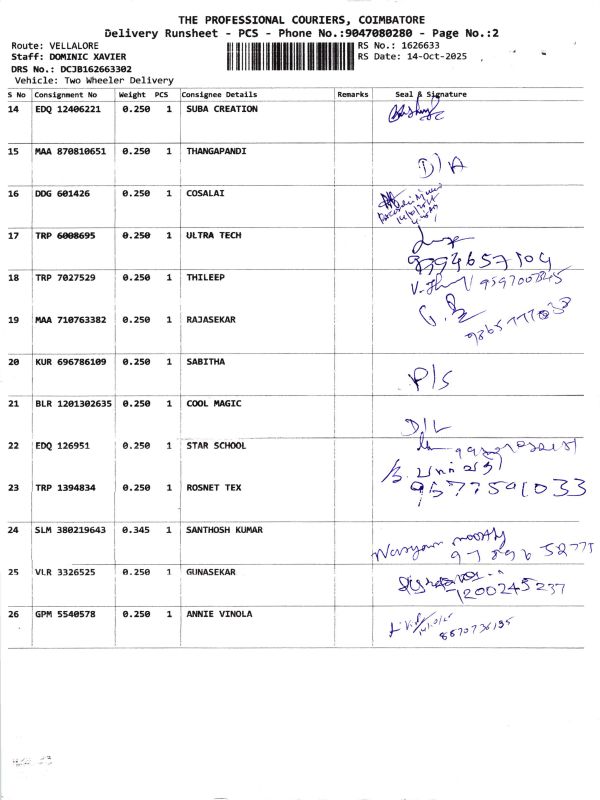 THE PROFESSIONAL COURIERS, COIMBATORE
Delivery Runsheet - PCS - Phone No.:9047080280 - Page No.:2
Route: VELLALORE RS No.: 1626633
Staff: DOMINIC XAVIER RS Date: 14-Oct-2025
DRS No.: DCJB162663302
Vehicle: Two Wheeler Delivery
S No Consignment No Weight PCS Consignee Details Remarks Seal & Signature
14 EDQ 12406221 0.250 1 SUBA CREATION
15 MAA 870810651 0.250 1 THANGAPANDI
D/A
16 DDG 601426 0.250 1 COSALAI
17 TRP 6008695 0.250 1 ULTRA TECH
9994657104
18 TRP 7027529 0.250 1 THILEEP
19 MAA 710763382 0.250 1 RAJASEKAR
20 KUR 696786109 0.250 1 SABITHA
P/S
21 BLR 1201302635 0.250 1 COOL MAGIC
D/L
22 EDQ 126951 0.250 1 STAR SCHOOL
23 TRP 1394834 0.250 1 ROSNET TEX
9577591033
24 SLM 380219643 0.345 1 SANTHOSH KUMAR
25 VLR 3326525 0.250 1 GUNASEKAR
26 GPM 5540578 0.250 1 ANNIE VINOLA